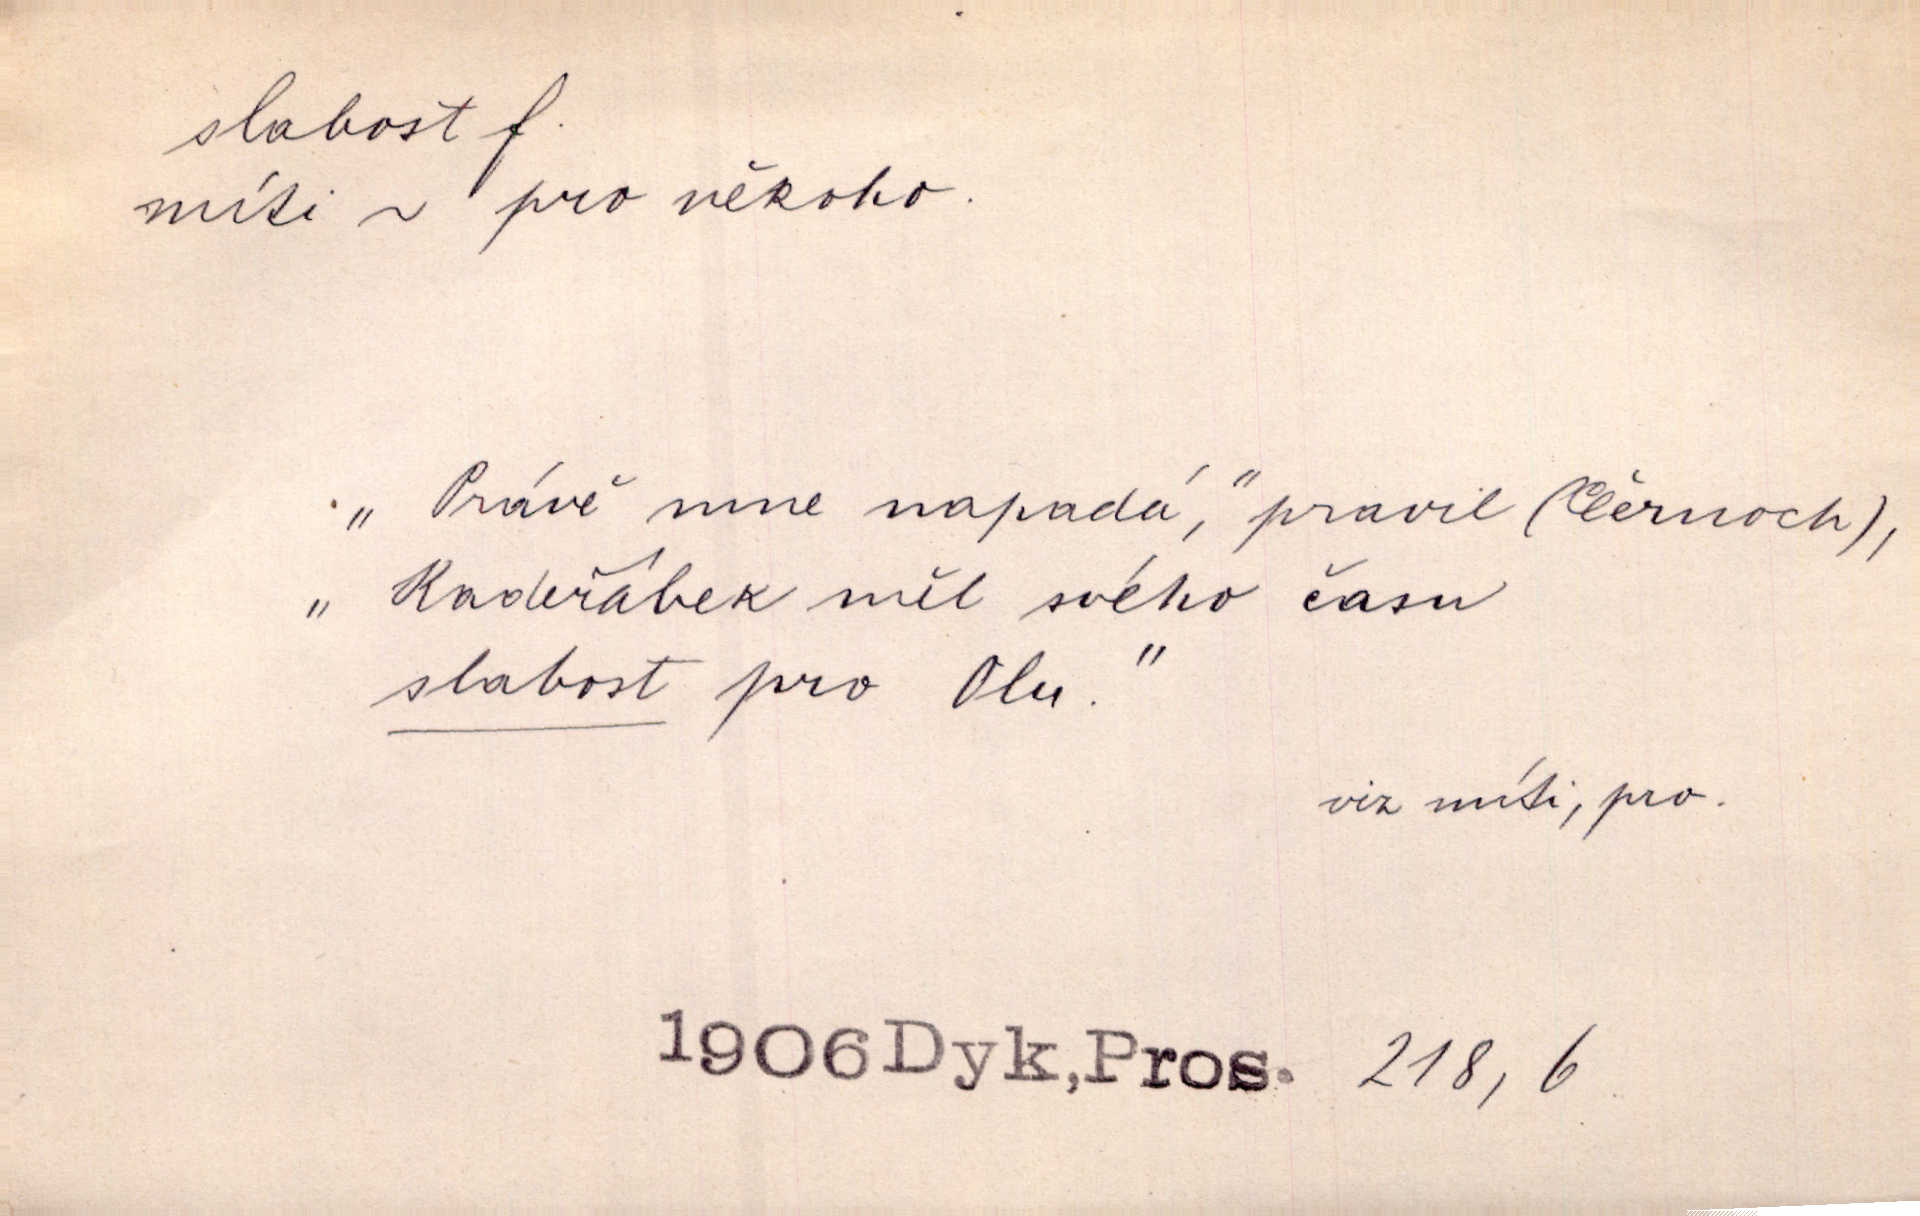 slabost f.
míti ~ pro někoho.
„Právě mne napadá," pravil (Černoch),
„Kadeřábek měl svého času
slabost pro Olu."
viz míti, pro.
1906 Dyk, Pros. 218, 6